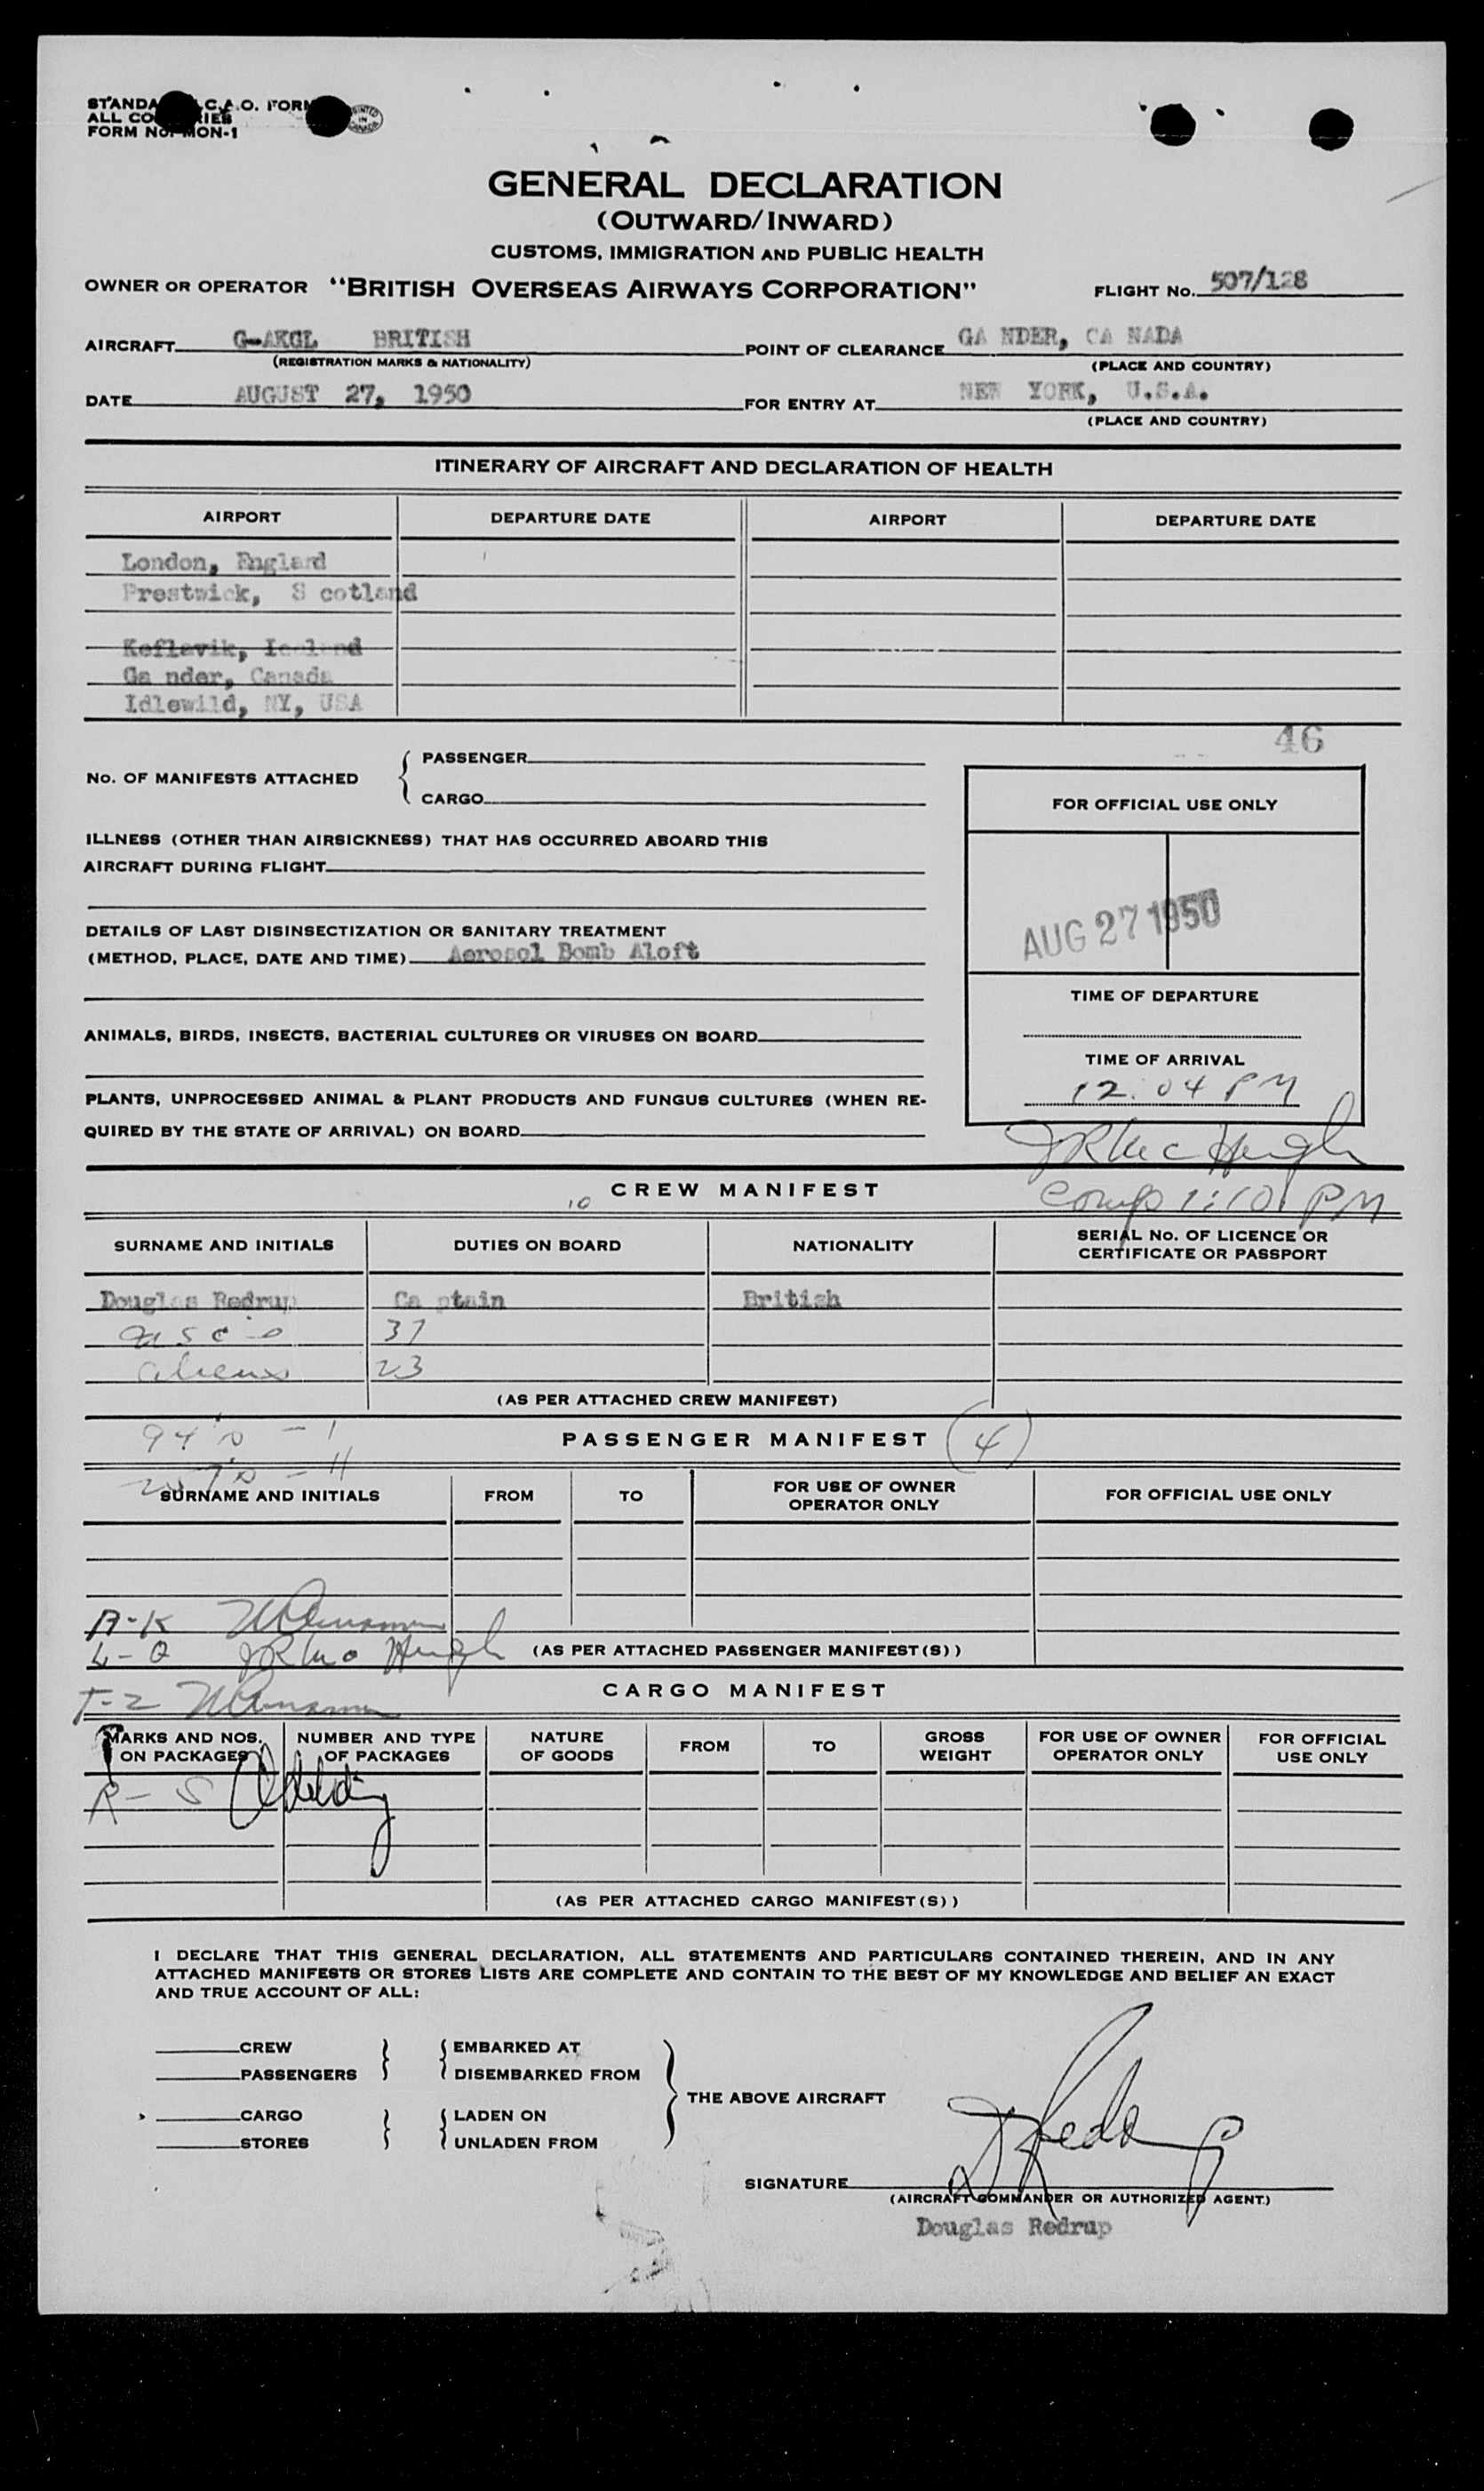 STANDA C.A.O. FORM
ALL CO RIES
FORM NO. MON-1
PRINTED IN CANADA
GENERAL DECLARATION
(OUTWARD/INWARD)
CUSTOMS, IMMIGRATION AND PUBLIC HEALTH
OWNER OR OPERATOR "BRITISH OVERSEAS AIRWAYS CORPORATION" FLIGHT NO. 507/128
AIRCRAFT G-AKGL BRITISH POINT OF CLEARANCE GA NDER, CA NADA
(REGISTRATION MARKS & NATIONALITY) (PLACE AND COUNTRY)
DATE AUGUST 27, 1950 FOR ENTRY AT NEW YORK, U.S.A.
(PLACE AND COUNTRY)
ITINERARY OF AIRCRAFT AND DECLARATION OF HEALTH
AIRPORT DEPARTURE DATE AIRPORT DEPARTURE DATE
London, England
Prestwick, S cotland
Keflavik, Iceland
Ga nder, Canada
Idlewild, NY, USA
46
NO. OF MANIFESTS ATTACHED { PASSENGER
CARGO
FOR OFFICIAL USE ONLY
ILLNESS (OTHER THAN AIRSICKNESS) THAT HAS OCCURRED ABOARD THIS
AIRCRAFT DURING FLIGHT
AUG 27 1950
DETAILS OF LAST DISINSECTIZATION OR SANITARY TREATMENT
(METHOD, PLACE, DATE AND TIME) Aerosol Bomb Aloft
TIME OF DEPARTURE
ANIMALS, BIRDS, INSECTS, BACTERIAL CULTURES OR VIRUSES ON BOARD
TIME OF ARRIVAL
12.04 PM
PLANTS, UNPROCESSED ANIMAL & PLANT PRODUCTS AND FUNGUS CULTURES (WHEN RE-
QUIRED BY THE STATE OF ARRIVAL) ON BOARD
JR McHugh
10 CREW MANIFEST Comp 1:10 PM
SURNAME AND INITIALS DUTIES ON BOARD NATIONALITY SERIAL NO. OF LICENCE OR
CERTIFICATE OR PASSPORT
Douglas Redrup Ca ptain British
37
aliens 23
(AS PER ATTACHED CREW MANIFEST)
94's - 1
PASSENGER MANIFEST (4)
257's - 11
SURNAME AND INITIALS FROM TO FOR USE OF OWNER
OPERATOR ONLY FOR OFFICIAL USE ONLY
A-K
L-Q JR McHugh (AS PER ATTACHED PASSENGER MANIFEST(S))
T-Z CARGO MANIFEST
MARKS AND NOS.
ON PACKAGES NUMBER AND TYPE
OF PACKAGES NATURE
OF GOODS FROM TO GROSS
WEIGHT FOR USE OF OWNER
OPERATOR ONLY FOR OFFICIAL
USE ONLY
R-S
(AS PER ATTACHED CARGO MANIFEST(S))
I DECLARE THAT THIS GENERAL DECLARATION, ALL STATEMENTS AND PARTICULARS CONTAINED THEREIN, AND IN ANY
ATTACHED MANIFESTS OR STORES LISTS ARE COMPLETE AND CONTAIN TO THE BEST OF MY KNOWLEDGE AND BELIEF AN EXACT
AND TRUE ACCOUNT OF ALL:
CREW EMBARKED AT
PASSENGERS DISEMBARKED FROM
THE ABOVE AIRCRAFT
CARGO LADEN ON
STORES UNLADEN FROM
D Redrup
SIGNATURE
(AIRCRAFT COMMANDER OR AUTHORIZED AGENT)
Douglas Redrup